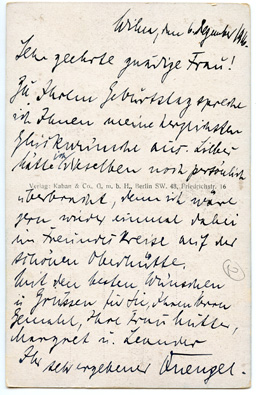 Wilna, den 6. Dezember 1916.
Sehr geehrte gnädige Frau!
Zu Ihrem Geburtstag spreche
ich Ihnen meine herzlichsten
Glückwünsche aus. Lieber
hätte ich dieselben noch persönlich
Verlag: Kahan & Co., G. m. b. H., Berlin SW. 48, Friedrichstr. 16
überbracht, denn ich wäre
gern wieder einmal dabei
im Freundeskreise auf der
schönen Oberhütte.
Mit den besten Wünschen
u Grüssen für Sie, Ihren Herrn
Gemahl, Ihre Frau Mutter,
Margret u. Leander
Ihr sehr ergebener Quengel.